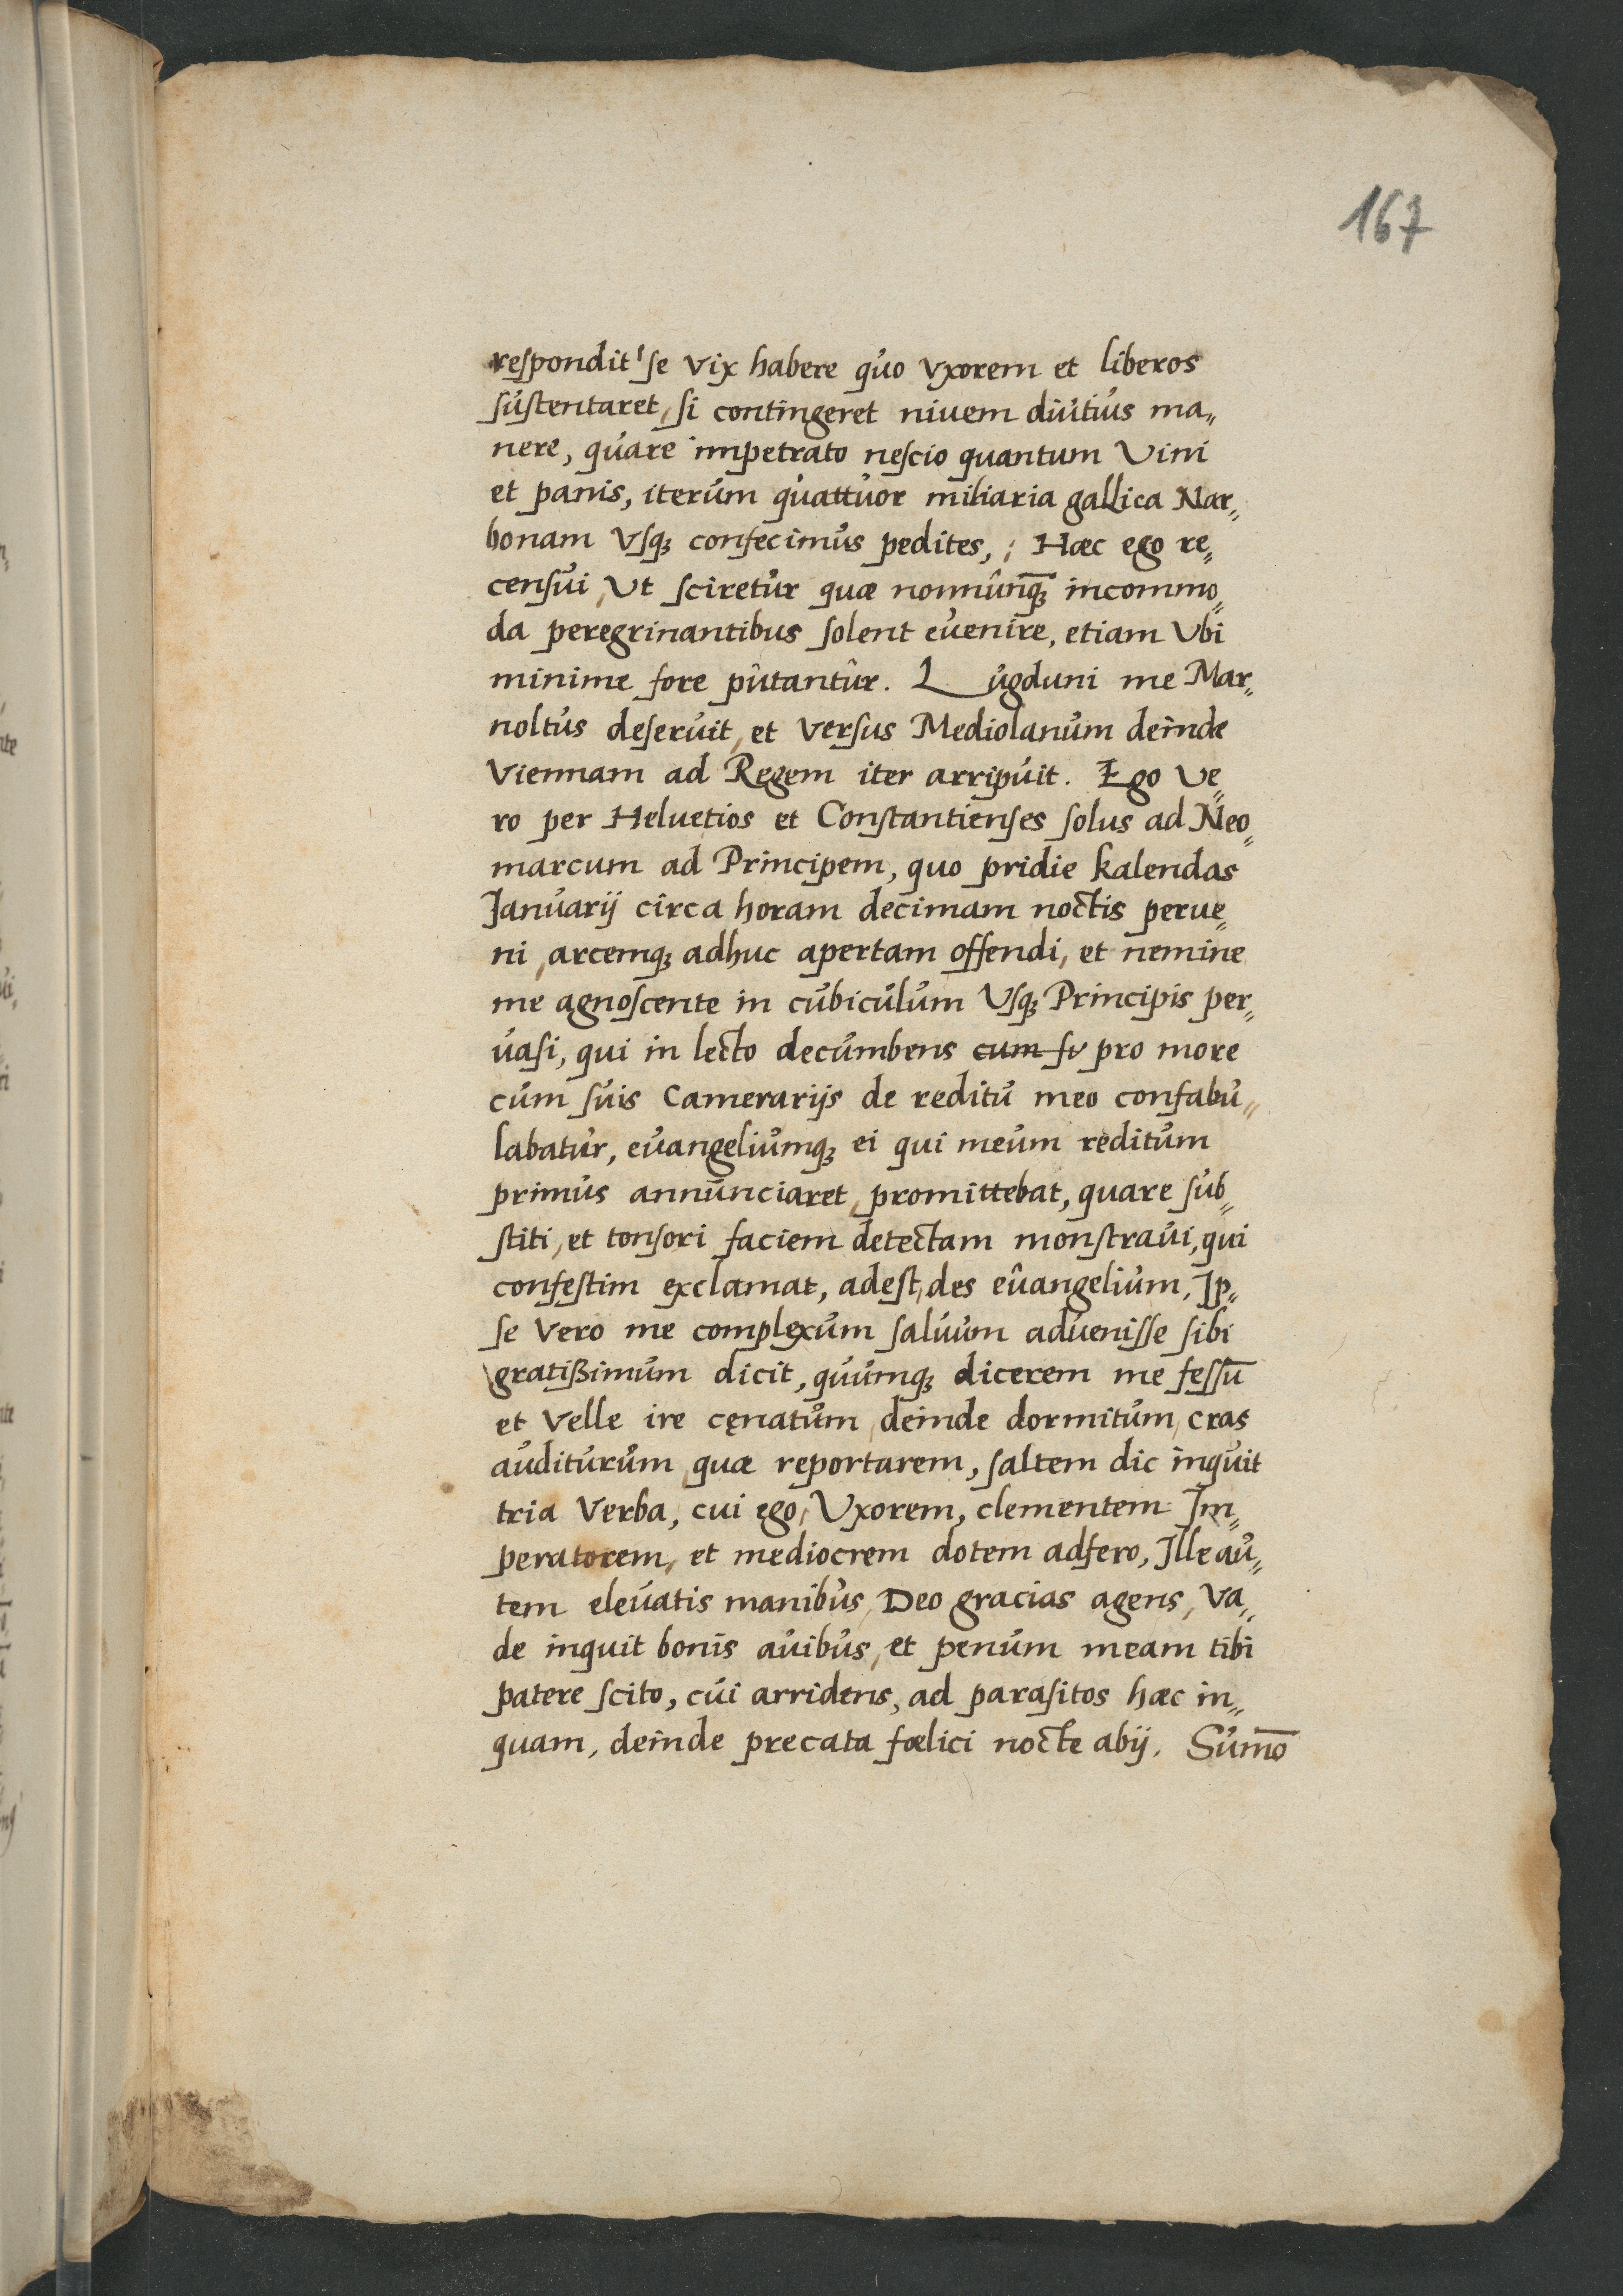 167
respondit se vix habere quo vxorem et liberos
sustentaret, si contingeret niuem diutius ma„
nere, quare impetrato nescio quantum Vini
et panis, iterum quattuor miliaria gallica Nar„
bonam Vsqꝫ confecimus pedites, ; Hæc ego re„
censui, Vt sciretur quæ nonnunq̄ꝫ incommo„
da peregrinantibus solent euenire, etiam Vbi
minime fore putantur. Lugduni me Mar„
noltus deseruit, et versus Mediolanum deinde
Viennam ad Regem iter arripuit. Ego Ve„
ro per Heluetios et Constantienses solus ad Neo„
marcum ad Principem, quo pridie kalendas
Januarij circa horam decimam noctis perue„
ni, arcemqꝫ adhuc apertam offendi, et nemine
me agnoscente in cubiculum Vsqꝫ Principis per„
uasi, qui in lecto decumbens cum su pro more
cum suis Camerarijs de reditu meo confabu„
labatur, euangeliumqꝫ ei qui meum reditum
primus annunciaret, promittebat, quare sub„
stiti, et tonsori faciem detectam monstraui, qui
confestim exclamat, adest, des euangelium, Jp„
se vero me complexum saluum aduenisse sibi
gratißimum dicit, quumqꝫ dicerem me fessū
et velle ire cęnatum, deinde dormitum, cras
auditurum quæ reportarem, saltem dic inquit
tria verba, cui ego, Vxorem, clementem Jm„
peratorem, et mediocrem dotem adfero, Jlle au„
tem eleuatis manibus, Deo gracias agens, Va„
de inquit bonis auibus, et penum meam tibi
patere scito, cui arridens, ad parasitos hæc in„
quam, deinde precata fœlici nocte abij. Sum̄o